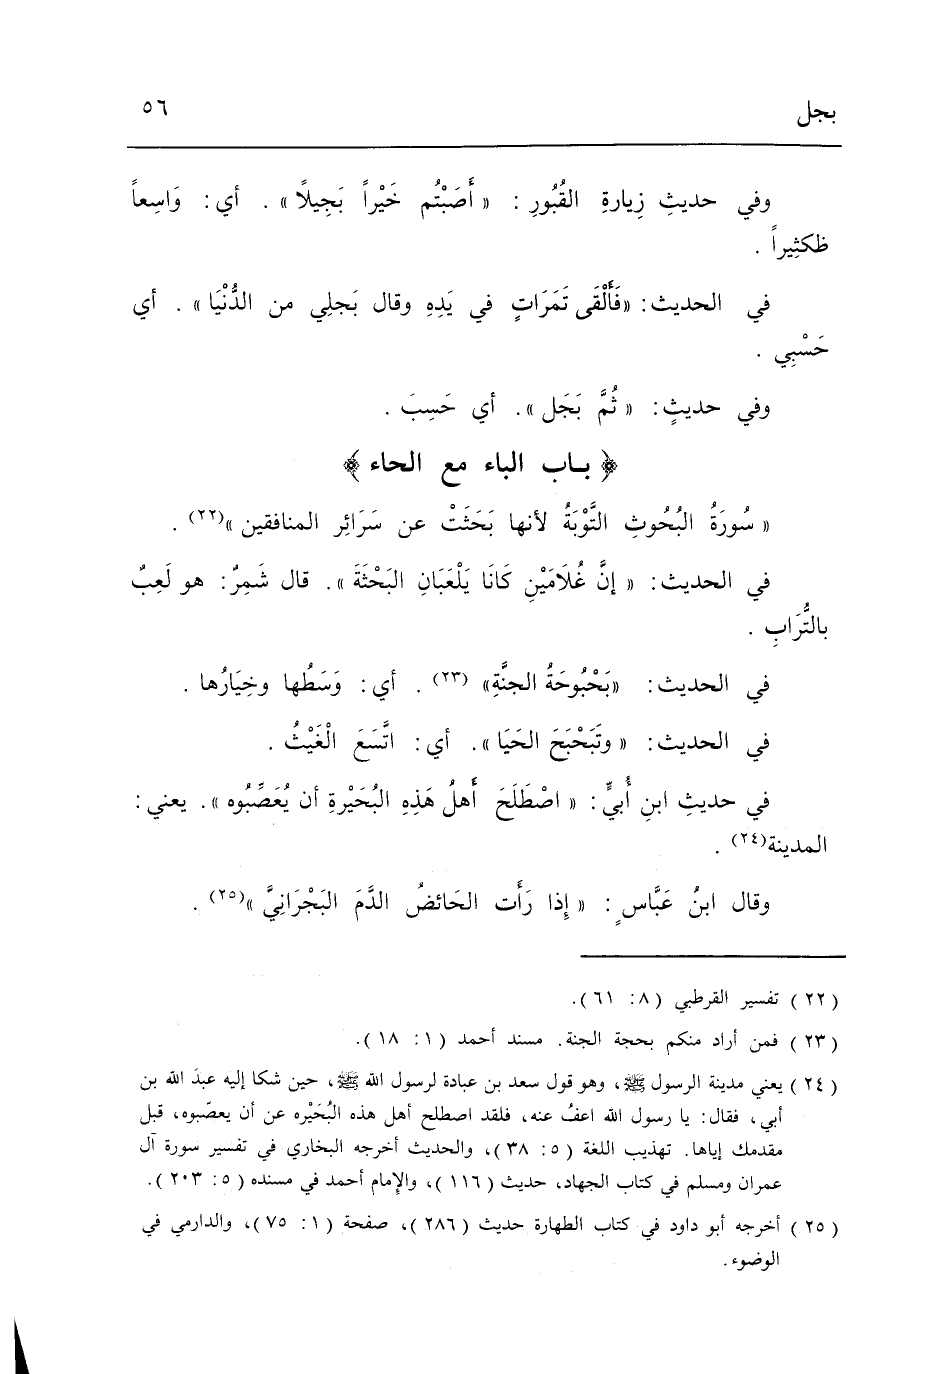 بجل
٥٦
وفي حديثِ زِيارةِ القُبُورِ : « أَصَبْتُم خَيْراً بَجِيلًا » . أي : وَاسِعاً
ظكثِيراً .
في الحديث : «فَأَلْقَى تَمَرَاتٍ في يَدِهِ وقال بَجلِي من الدُّنْيَا » . أي
حَسْبِي .
وفي حديثٍ : « ثُمَّ بَجَل ». أي حَسِبَ .
﴿ بـاب البـاء مع الحاء ﴾
« سُورَةُ البُحُوثِ التَّوْبَةُ لأنها بَحَثَتْ عن سَرَائِر المنافقين »(٢٢) .
في الحديث : « إنَّ غُلَامَيْنِ كَانَا يَلْعَبَانِ البَحْثَةَ ». قال شَمِرٌ : هو لَعِبٌ
بالتُّرَابِ .
في الحديث : «بَحْبُوحَةُ الجنَّةِ» (٢٣) . أي : وَسَطُها وخِيَارُها .
في الحديث : « وتَبَحْبَحَ الحَيَا ». أي : اتَّسَعَ الْغَيْثُ .
في حديثِ ابنِ أُبيٍّ : « اصْطَلَحَ أَهلُ هَذِهِ البُحَيْرةِ أن يُعَصِّبُوه ». يعني :
المدينة(٢٤) .
وقال ابنُ عَبَّاسٍ : « إِذا رَأَت الحَائضُ الدَّمَ البَحْرَانِيَّ »(٢٥) .
(٢٢) تفسير القرطبي (٨ : ٦١).
(٢٣) فمن أراد منكم بحجة الجنة. مسند أحمد (١ : ١٨).
(٢٤) يعني مدينة الرسول ﷺ، وهو قول سعد بن عبادة لرسول الله ﷺ، حين شكا إليه عبدَ الله بن
أبي، فقال: يا رسول الله اعفُ عنه، فلقد اصطلح أهل هذه البُحَيْره عن أن يعصّبوه، قبل
مقدمك إياها. تهذيب اللغة (٥ : ٣٨)، والحديث أخرجه البخاري في تفسير سورة آل
عمران ومسلم في كتاب الجهاد، حديث (١١٦)، والإمام أحمد في مسنده (٥ : ٢٠٣).
(٢٥) أخرجه أبو داود في كتاب الطهارة حديث (٢٨٦)، صفحة (١ : ٧٥)، والدارمي في
الوضوء.